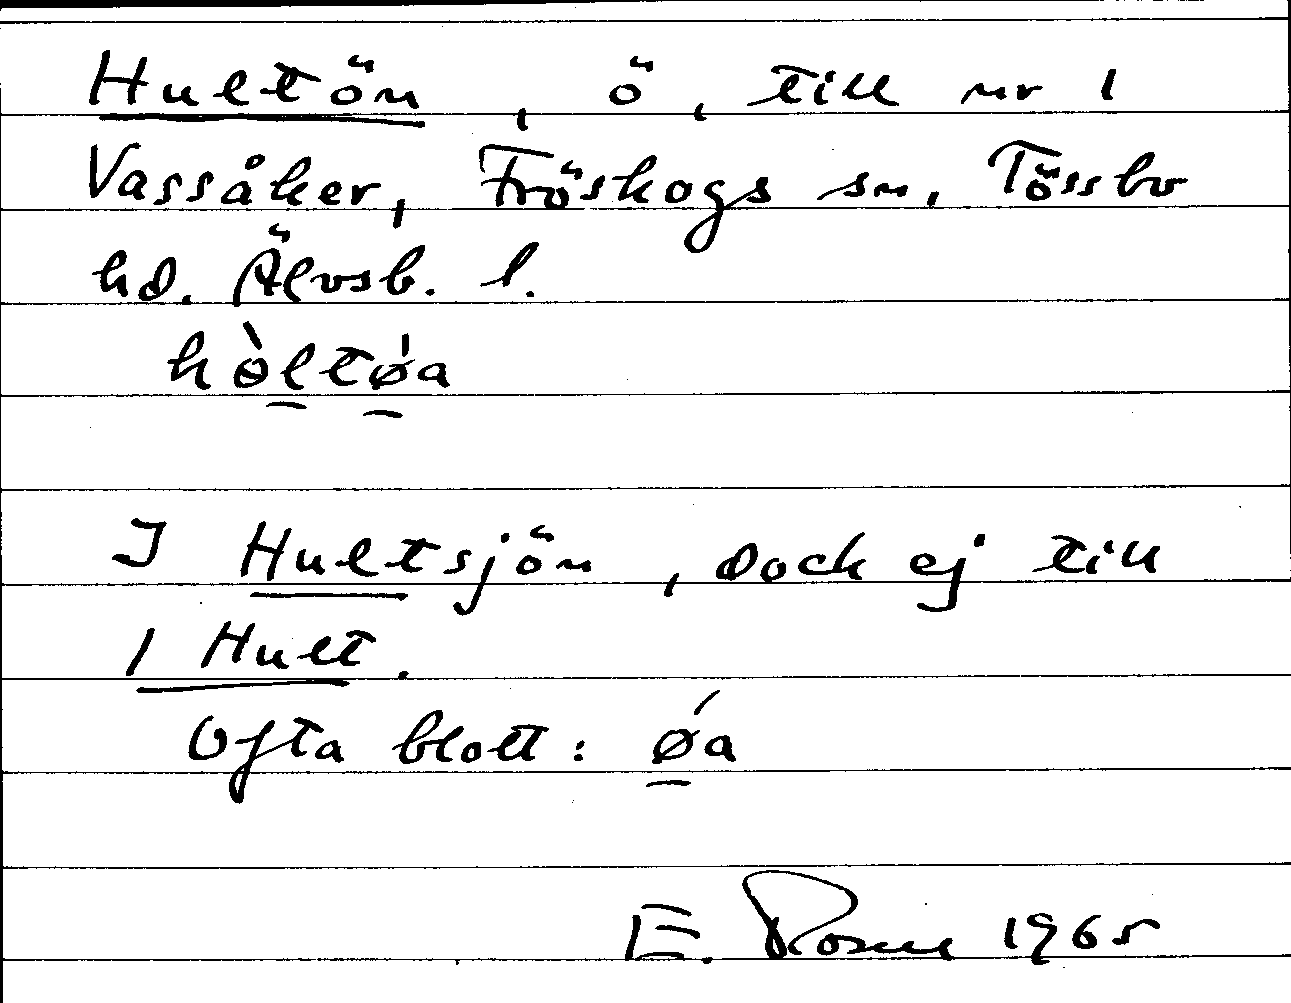 Hultön, ö, till nr 1
Vassåker, Fröskogs sn, Tössbo
hd. Älvsb. l.
hòltǿa
I Hultsjön, dock ej till
1 Hult.
Ofta blott: ǿa
E. Rosell 1965